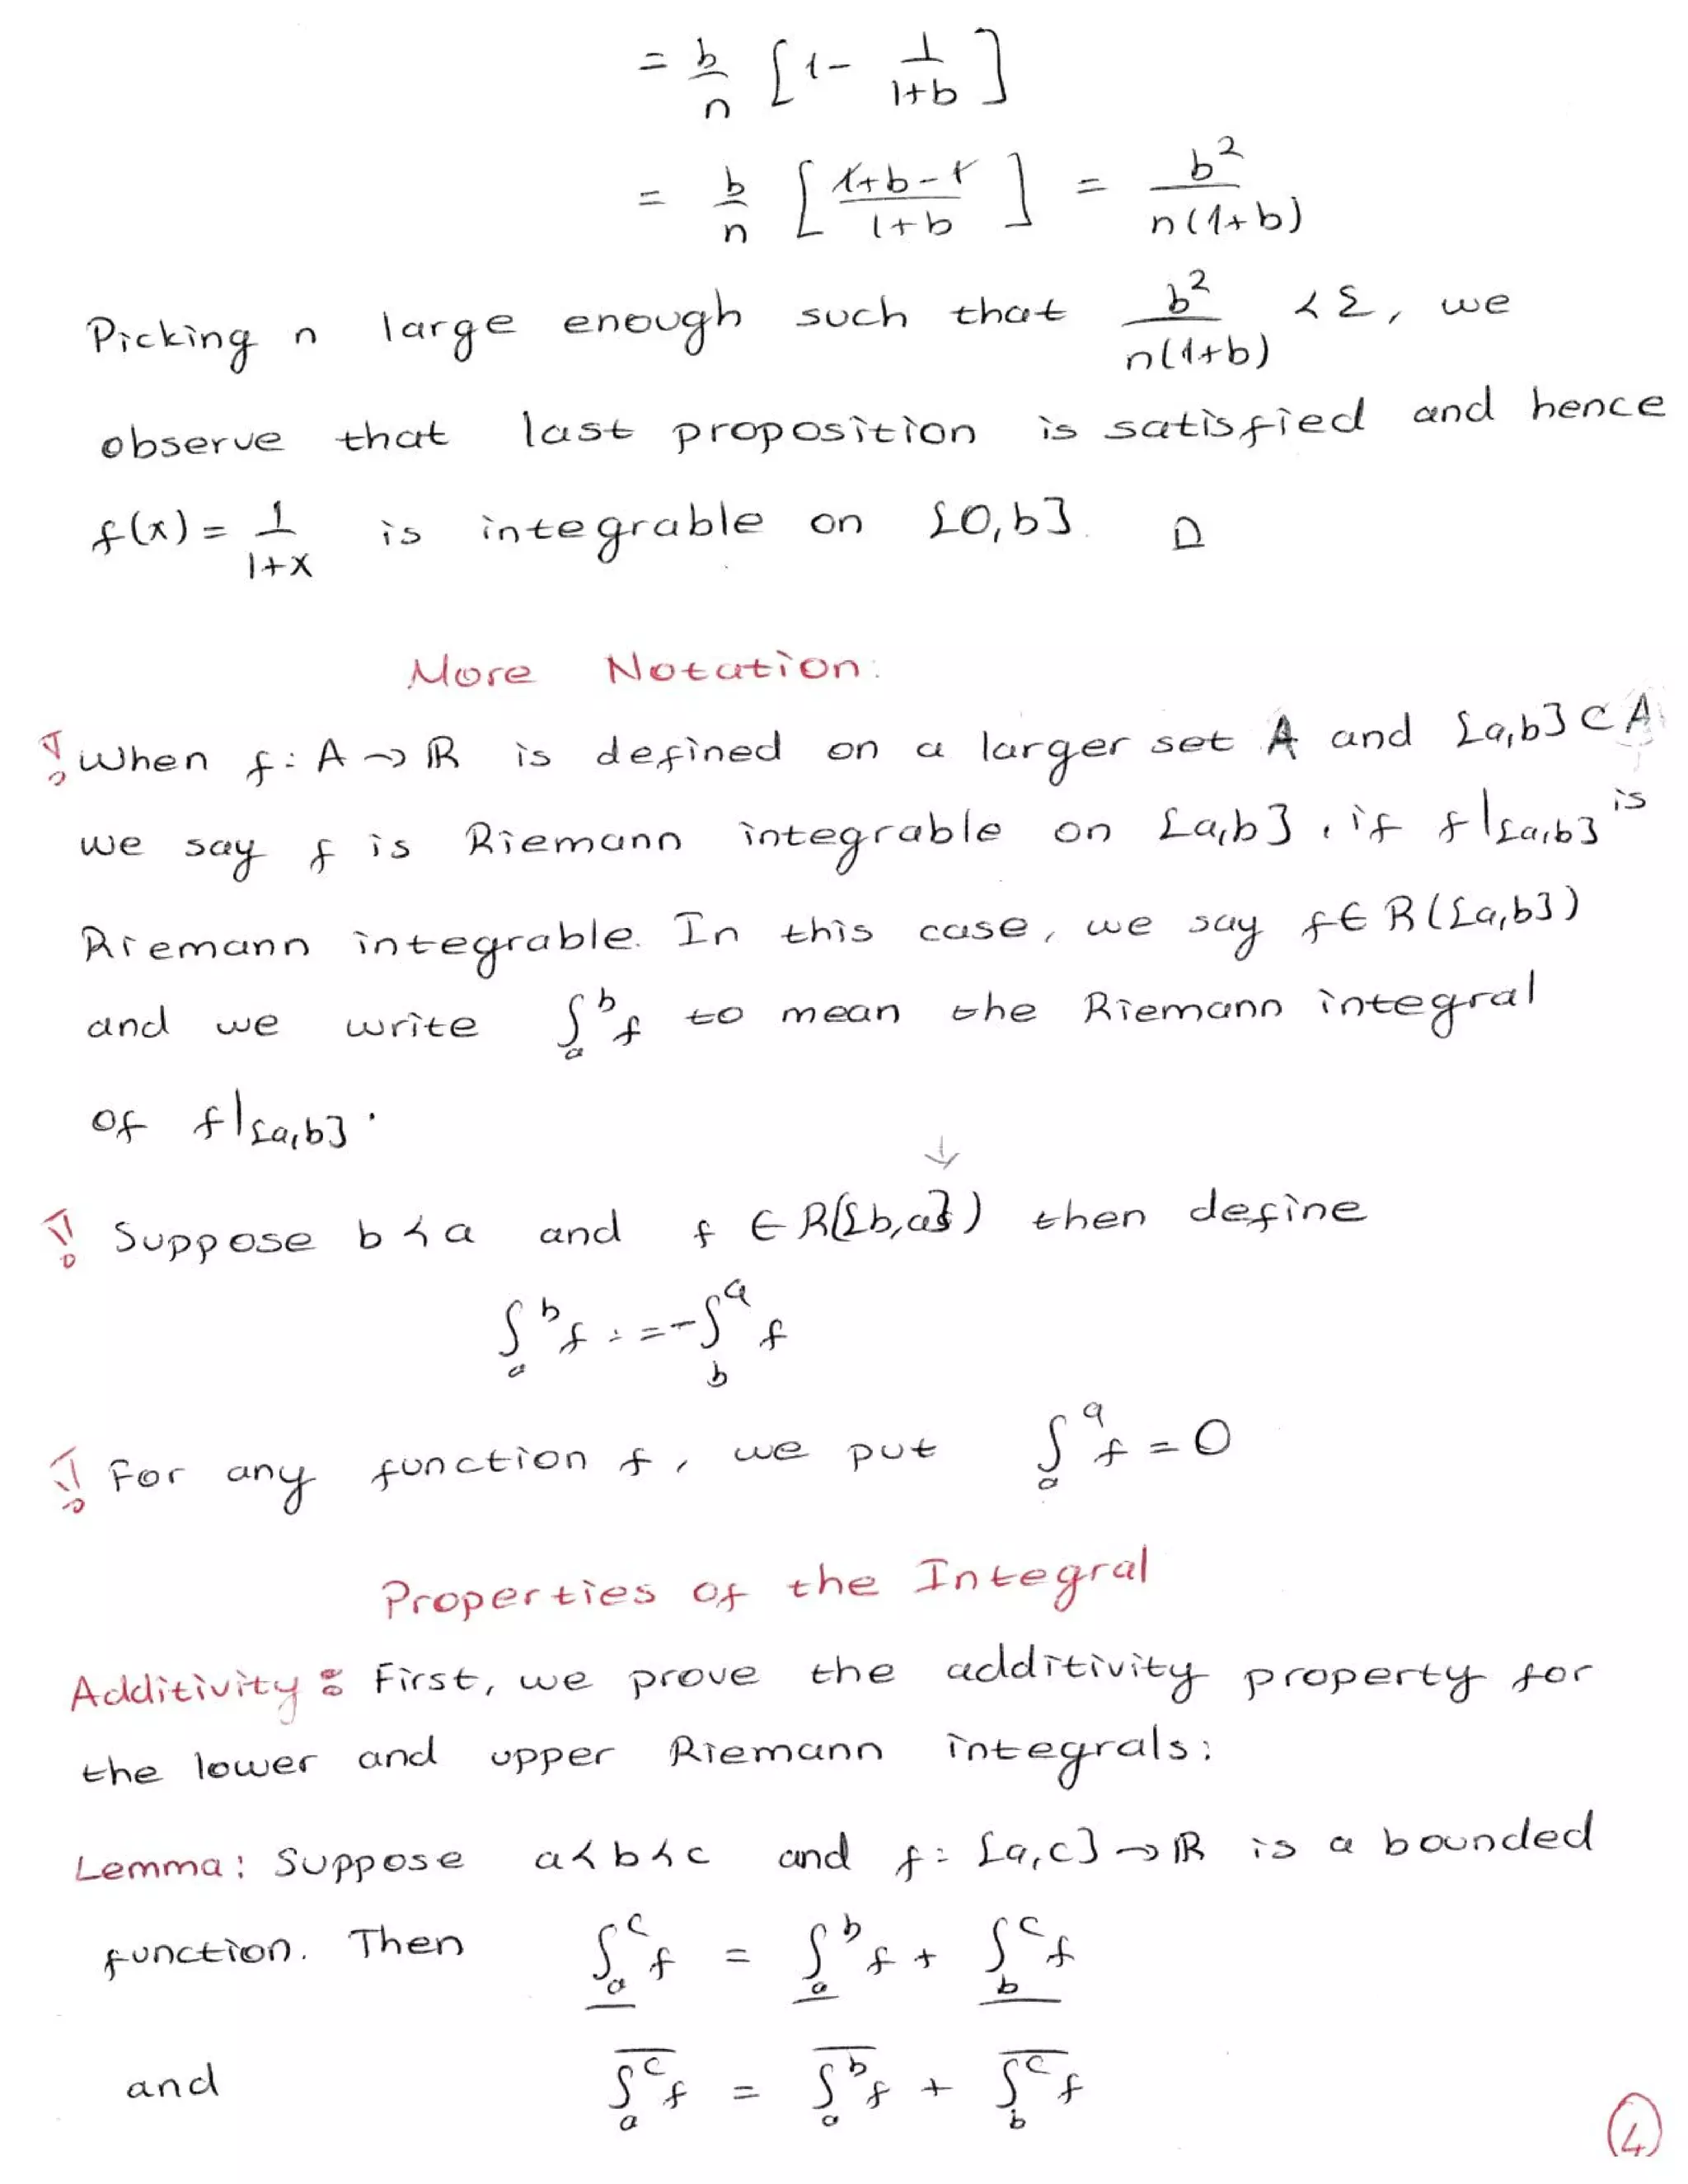 = b/n [1 - 1/(1+b)]
= b/n [(1+b-1)/(1+b)] = b²/(n(1+b))
Picking n large enough such that b²/(n(1+b)) < ε, we
observe that last proposition is satisfied and hence
f(x) = 1/(1+x) is integrable on [0,b]. □
More Notation:
! When f: A → ℝ is defined on a larger set A and [a,b] ⊂ A
we say f is Riemann integrable on [a,b], if f|[a,b] is
Riemann integrable. In this case, we say f ∈ R([a,b])
and we write ∫ₐᵇ f to mean the Riemann integral
of f|[a,b].
↓
! Suppose b < a and f ∈ R([b,a]) then define
∫ₐᵇ f := -∫_b^a f
! For any function f, we put ∫_a^a f = 0
Properties of the Integral
Additivity: First, we prove the additivity property for
the lower and upper Riemann integrals:
Lemma: Suppose a < b < c and f: [a,c] → ℝ is a bounded
function. Then \underline{∫_a^c} f = \underline{∫_a^b} f + \underline{∫_b^c} f
and \overline{∫_a^c} f = \overline{∫_a^b} f + \overline{∫_b^c} f
4